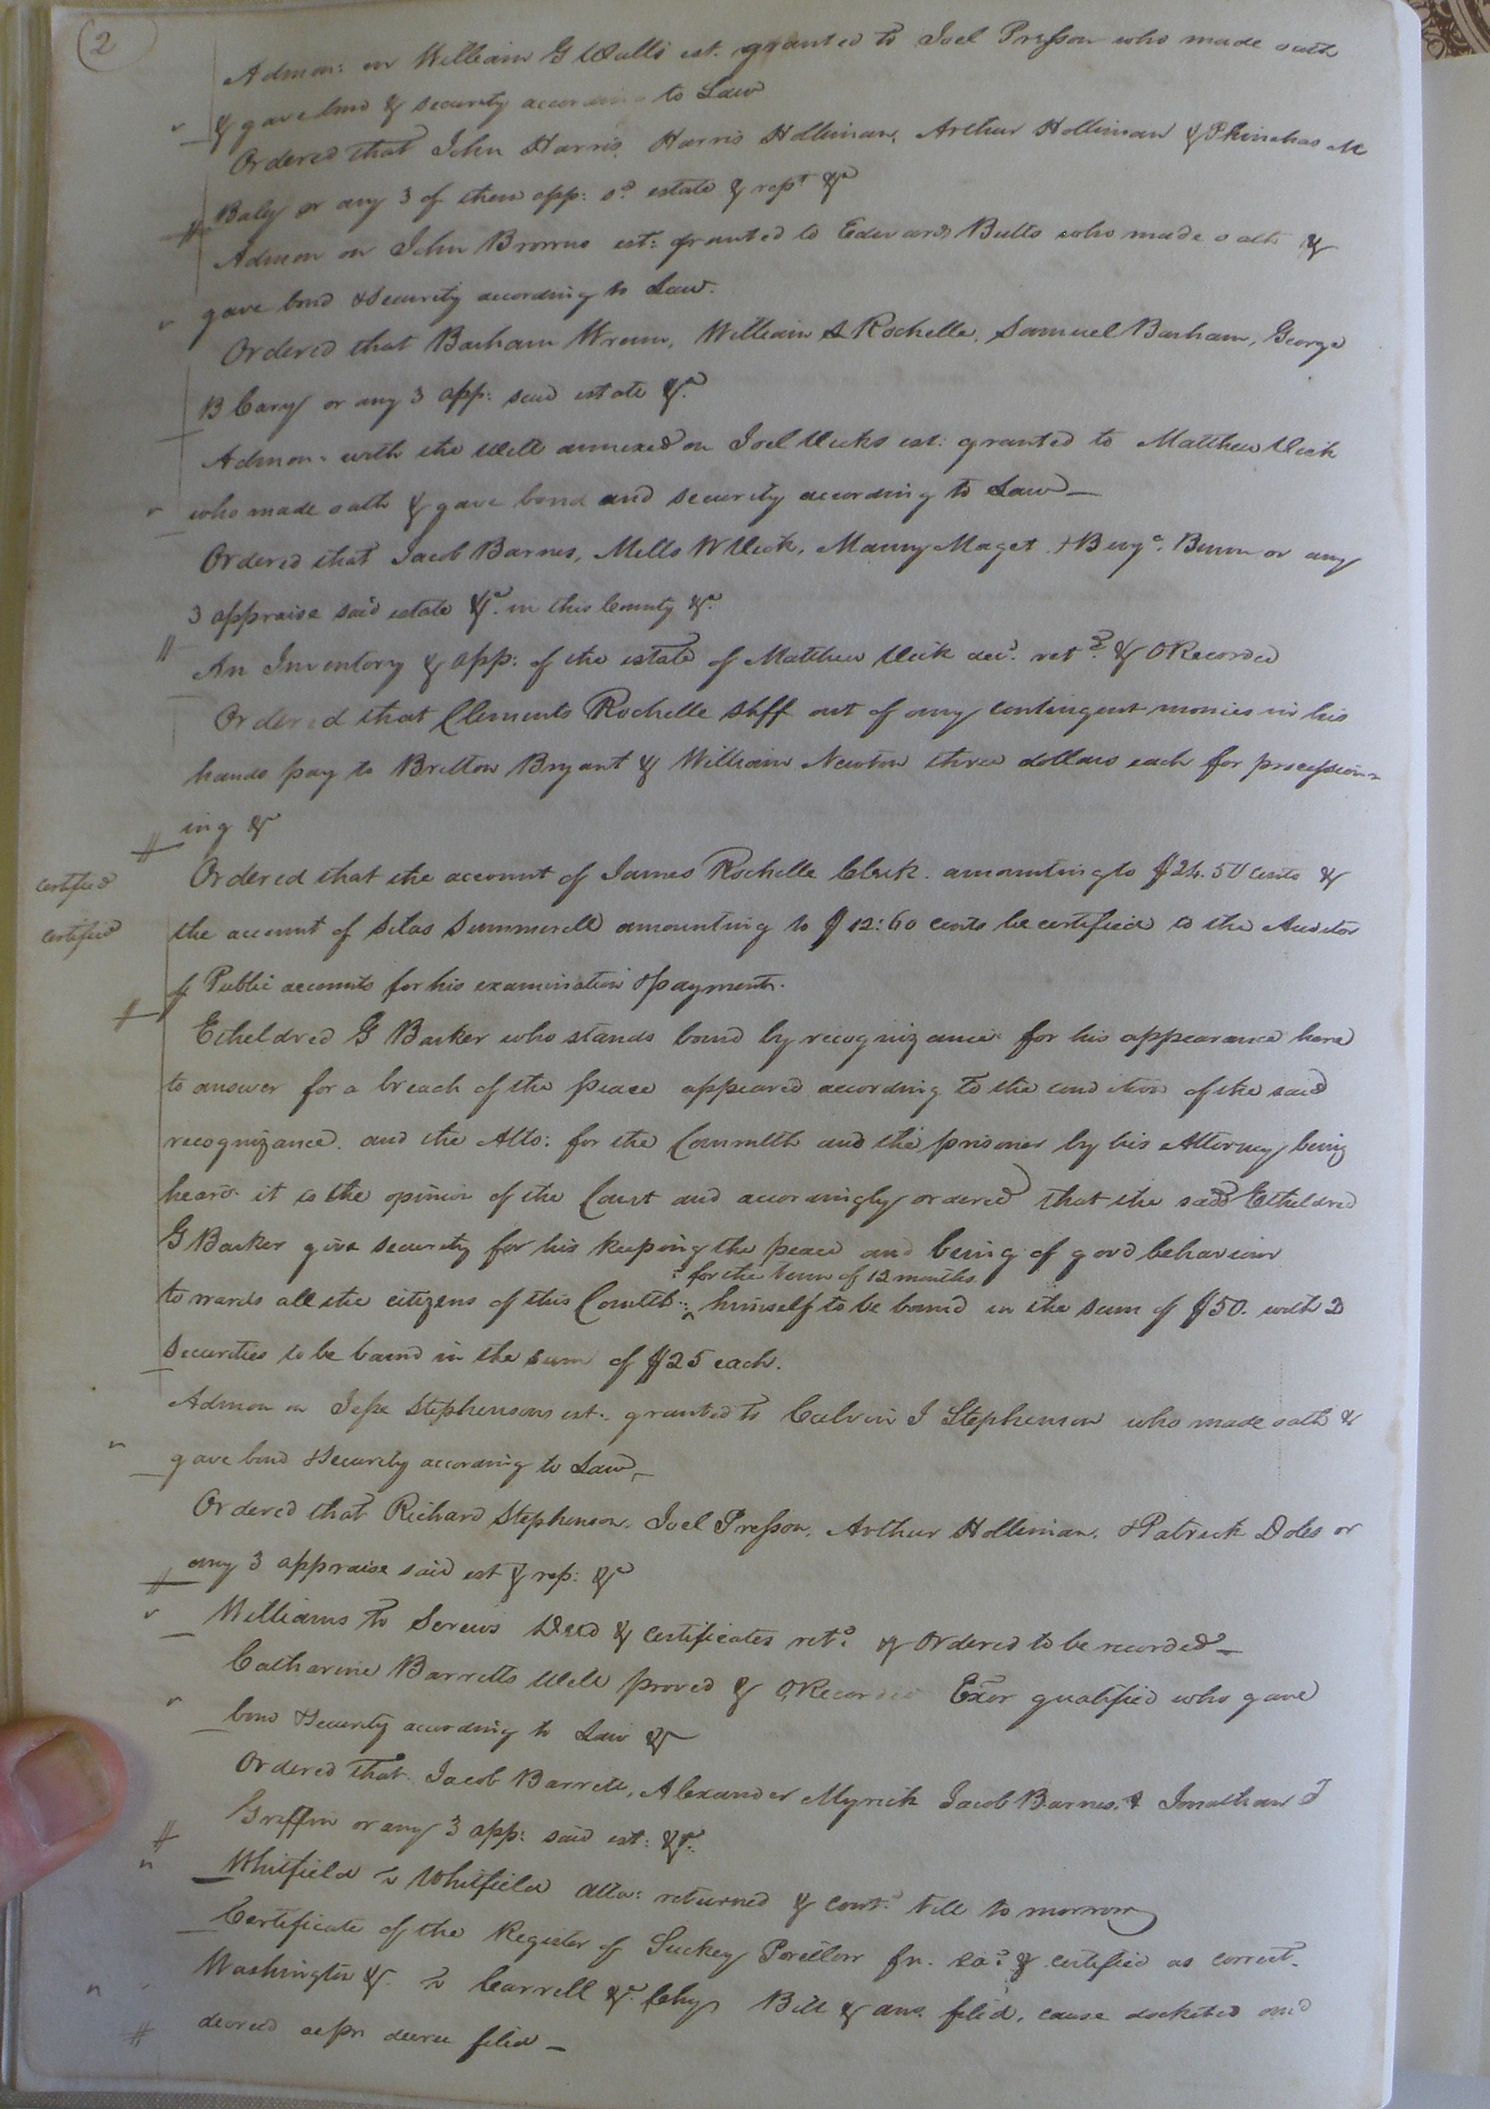 2
Admon: on William G Wells est. granted to Joel Presson who made oath
& gave bond & security according to Law
Ordered that John Harris, Harris Holliman, Arthur Holliman & Phinehas M
Baly or any 3 of them app: sd. estate & rept &c
Admon on John Browns est: granted to Edwards Butts who made oath &
gave bond & Security according to Law.
Ordered that Barham Wrenn, William S Rochelle, Samuel Barham, George
B Cary or any 3 app: said estate &c.
Admon: with the Will annexed on Joel Vicks est: granted to Matthew Vick
who made oath & gave bond and security according to Law
Ordered that Jacob Barnes, Mills W Vick, Manny Maget & Benj. or any
3 appraise said estate &c. in this County &c.
An Inventory & app: of the estate of Matthew Vick decd. retd. & ORecorded
Ordered that Clements Rochelle Shff out of any contingent monies in his
hands pay to Britton Bryant & William Newton three dollars each for procession-
ing &c
certified Ordered that the account of James Rochelle Clerk. amounting to $24.50 cents &
certified the account of Silas Summerell amounting to $12:60 cents be certified to the Auditor
of Public accounts for his examination & payment.
Etheldred G Barker who stands bound by recognizance for his appearance here
to answer for a breach of the peace appeared according to the condition of the said
recognizance. and the Atto: for the Commlth and the prisoner by his Attorney being
heard it is the opinion of the Court and accordingly ordered that the said Etheldred
G Barker give security for his keeping the peace and being of good behaviour
: for the term of 12 months
towards all the citizens of this Comlth: himself to be bound in the sum of $50. with 2
securities to be bound in the sum of $25 each.
Admon on Jesse Stephensons est: granted to Calvin J Stephenson who made oath &
gave bond & Security according to Law
Ordered that Richard Stephenson, Joel Presson, Arthur Holliman, & Patrick Doles or
any 3 appraise said est & rep: &c
Williams to Screws Deed & certificates retd. & Ordered to be recorded
Catharine Barretts Will proved & ORecorded Exor qualified who gave
bond & Security according to Law &c
Ordered that Jacob Barrett, Alexander Myrick Jacob Barnes, & Jonathan T
Griffin or any 3 app: said est: &c.
Whitfield vs Whitfield atta: returned & contd. till to morrow
Certificate of the Register of Suckey fn. & certified as correct.
Washington &c. vs Carrell &c. Chy Bill & ans. filed, cause docketed and
decreed as pr decree filed